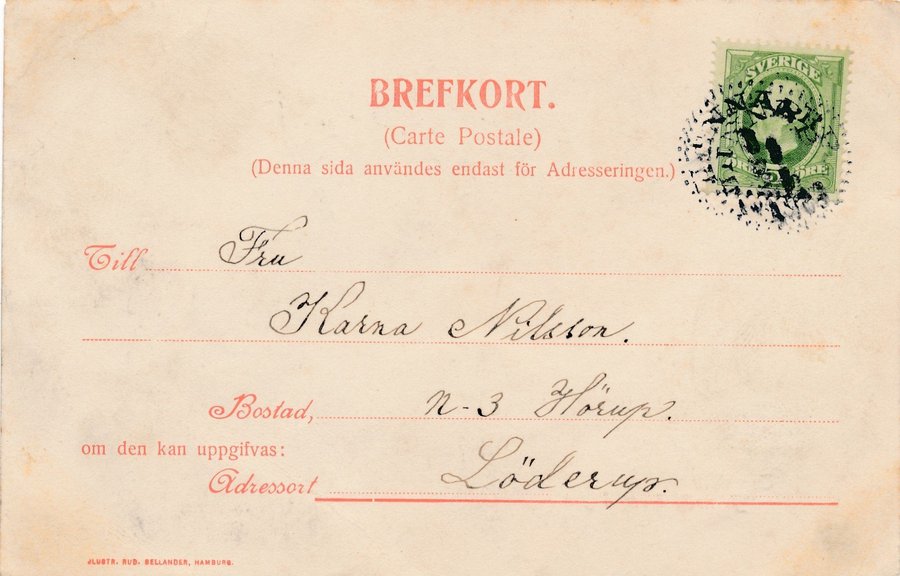 SVERIGE
BREFKORT.
(Carte Postale)
(Denna sida användes endast för Adresseringen.)
Till Fru
Karna Nilsson.
Bostad, N-3 Hörup.
om den kan uppgifvas:
Adressort Löderup.
JLUSTR. RUD. BELLANDER, HAMBURG.